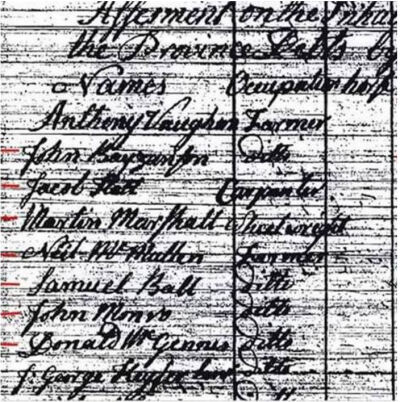 Assesment on the Inhab
the Province Batts by
Names Occupation
Anthony Vaughan Farmer
John ditto
Jacob Carpenter
Martin Marshall Wheelwright
Neil McMullin Farmer
Samuel Ball Ditto
John Monro ditto
Donald McGennis ditto
George ditto